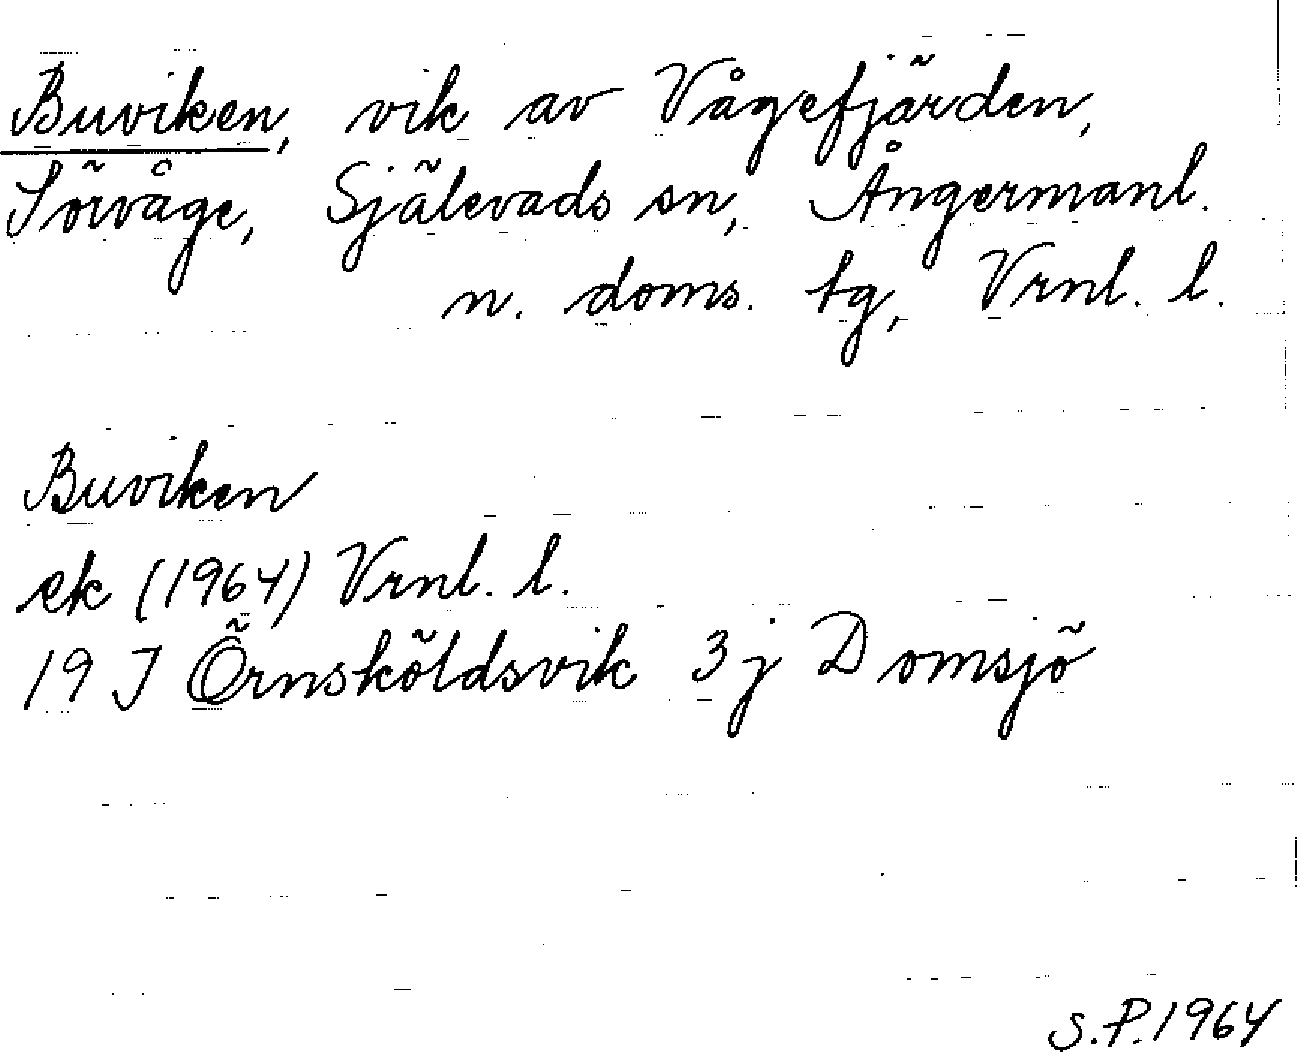 Buviken, vik av Vågefjärden,
Sörvåge, Själevads sn, Ångermanl.
n. doms. tg, Vrnl. l.
Buviken
ek (1964) Vrnl. l.
19 J Örnsköldsvik 3 j Domsjö
S.P. 1964